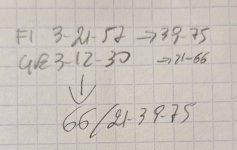 FI 3-21-57 → 39-75
GRE 3-12-30 → 21-66
↓
66/21-39-75